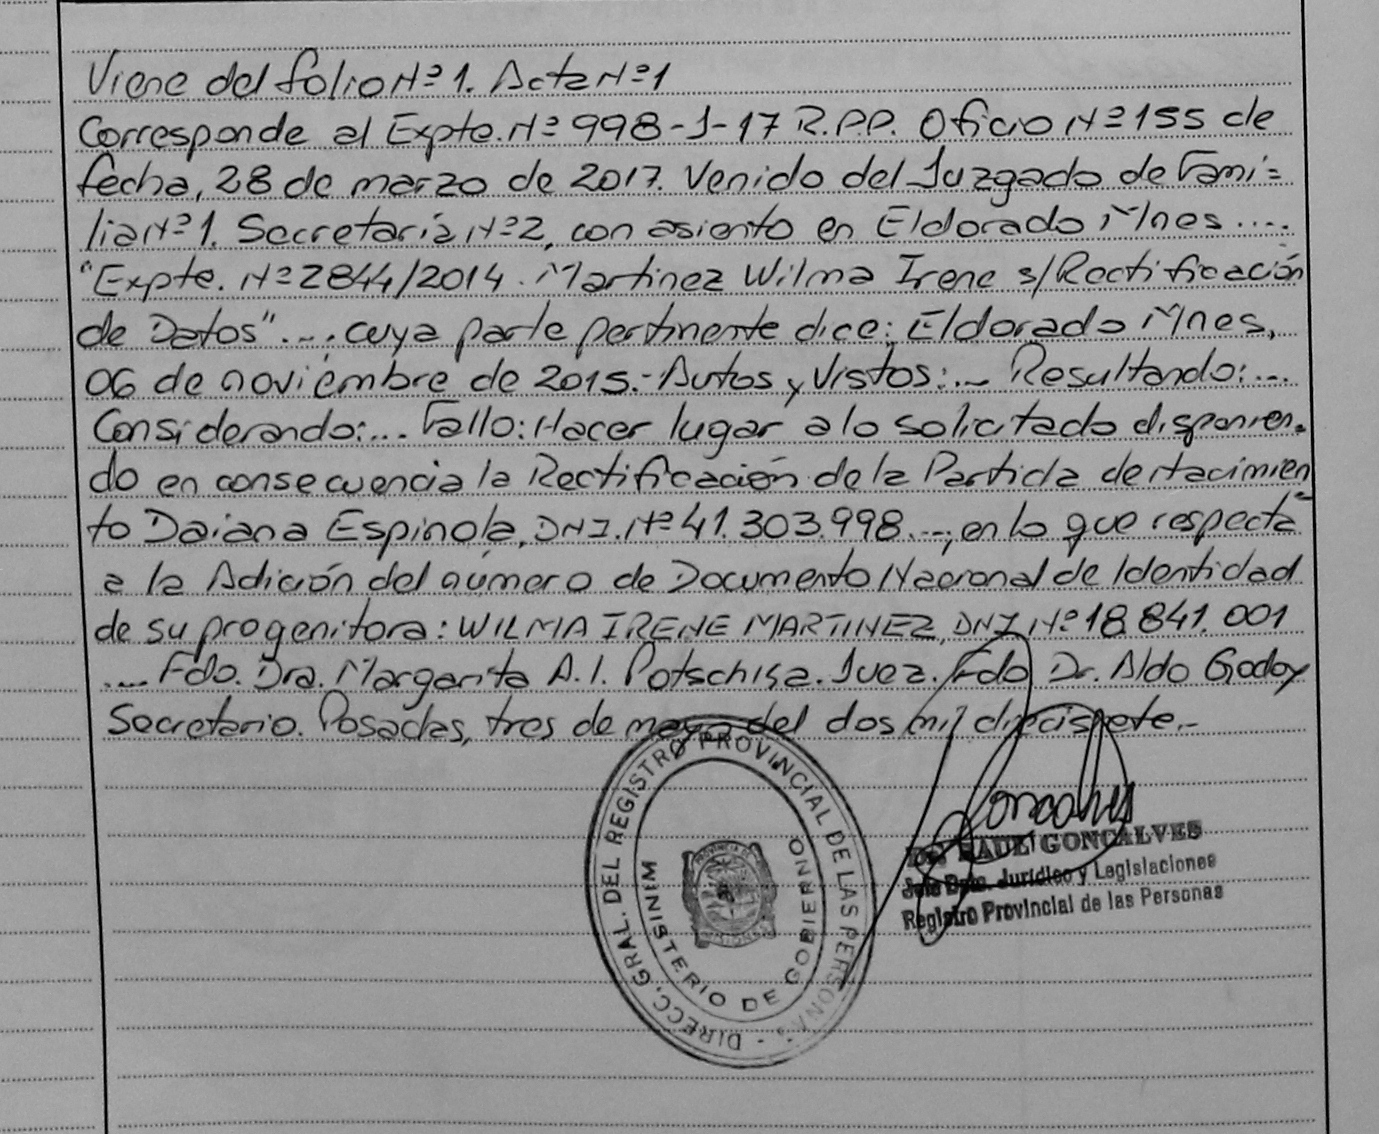 Viene del folio Nº 1. Acta Nº 1
Corresponde al Expte. Nº 998-J-17 R.P.P. Oficio Nº 155 de
fecha, 28 de marzo de 2017. Venido del Juzgado de Fami=
lia Nº 1. Secretaría Nº 2, con asiento en Eldorado Mnes ....
"Expte. Nº 2844/2014. Martinez Wilma Irene s/Rectificación
de Datos"...; cuya parte pertinente dice: Eldorado Mnes,
06 de noviembre de 2015.- Autos y Vistos:... Resultando:...
Considerando:... Fallo: Hacer lugar a lo solicitado disponien-
do en consecuencia la Rectificación de la Partida de Nacimien-
to Daiana Espinola, DNI. Nº 41.303.998...; en lo que respecta
a la Adición del numero de Documento Nacional de Identidad
de su progenitora: WILMA IRENE MARTINEZ, DNI Nº 18.841.001
.... Fdo. Dra. Margarita A. I. Potschisa. Juez. Fdo Dr. Aldo Godoy
Secretario. Posadas, tres de mayo del dos mil diecisiete.-
DIRECC. GRAL. DEL REGISTRO PROVINCIAL DE LAS PERSONAS -
MINISTERIO DE GOBIERNO
PROVINCIA DE
MISIONES
Goncalves
Dr. RAUL GONCALVES
Jefe Dpto. Jurídico y Legislaciones
Registro Provincial de las Personas